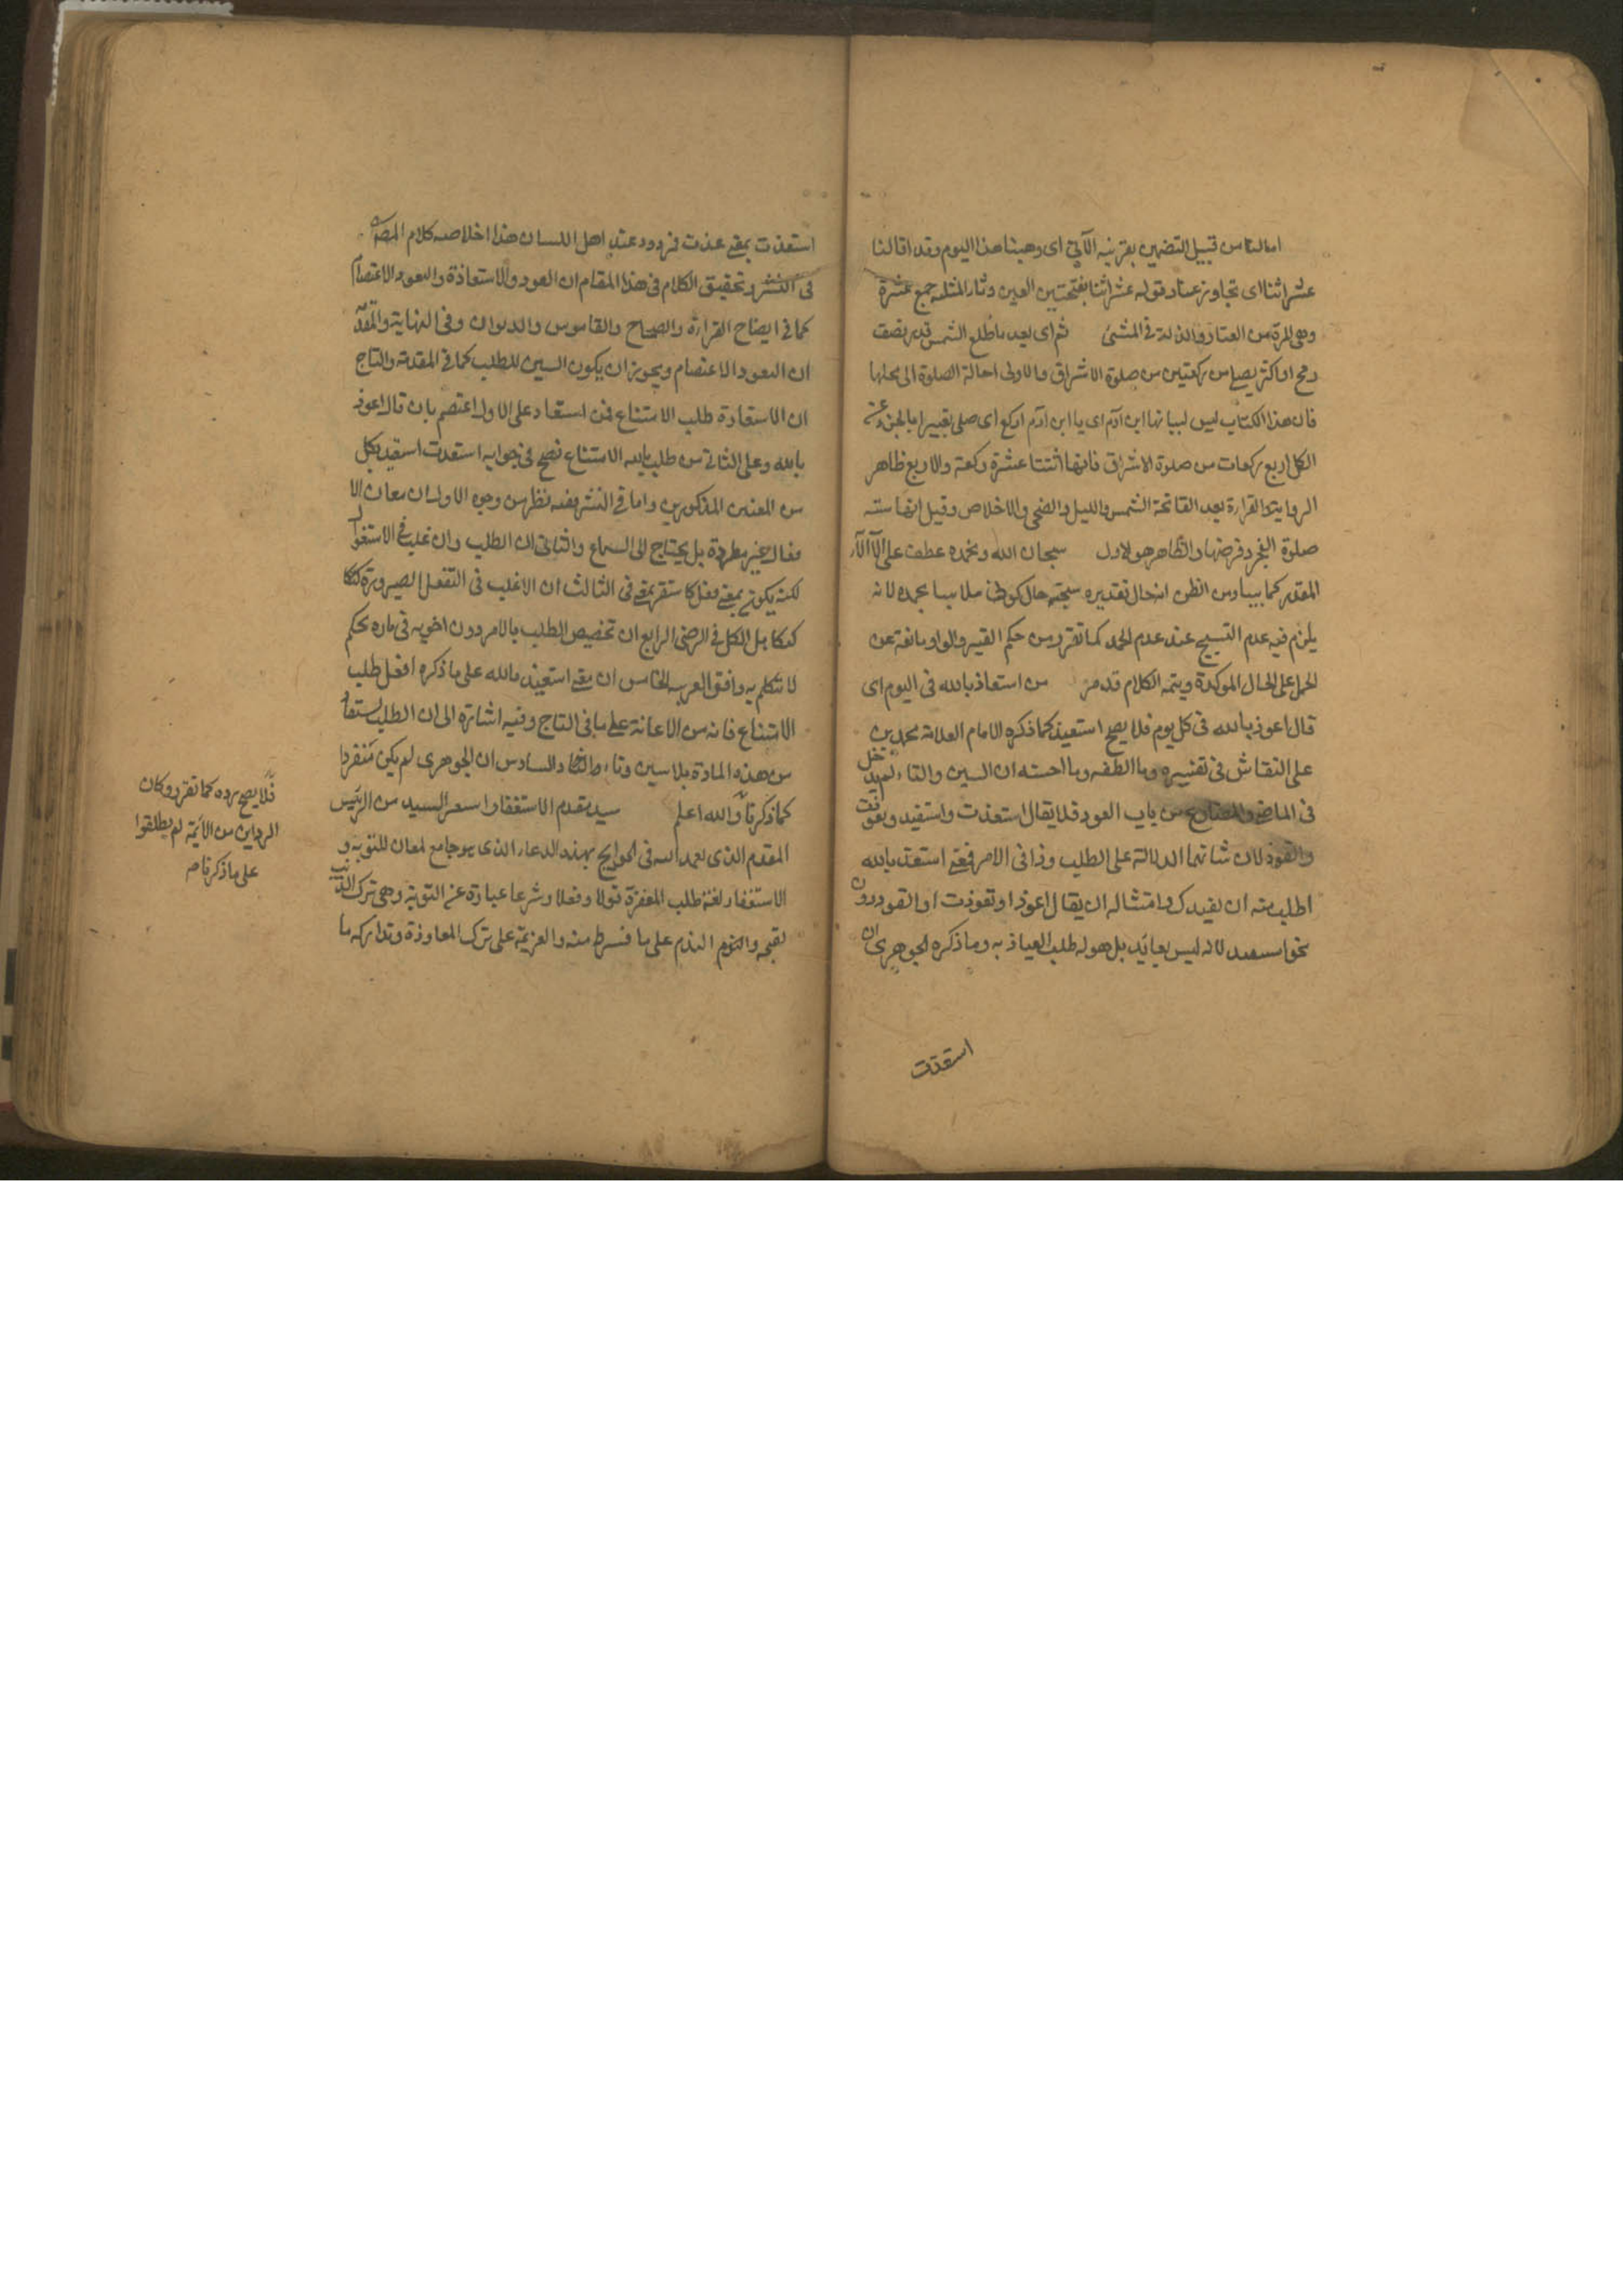 امالنا من قبيل التضمين بقرينة الآتي اى وهبنا هذا اليوم وقد اقالنا
عثراتنا اى تجاوز عنا وقوله عثراتنا بفتحتين العين وثاء المثلثة جمع عثرة
وهى المرة من العثار والذلة فى المشى ثم اى بعد ما طلع الشمس قدر نصف
رمح او اكثر يصلى ركعتين من صلوة الاشراق والاولى احالة الصلوة الى محلها
فان هذا الكتاب ليس لبيانها ابن آدم اى يا ابن آدم اركع اى صلى تعبيرا بالجزء عن
الكل اربع ركعات من صلوة الاشراق فانها اثنتا عشرة ركعة والاربع ظاهر
الرواية والقراءة بعد الفاتحة الشمس والليل والضحى والاخلاص وقيل انها سنة
صلوة الفجر وفرضها والظاهر هو الاول سبحان الله وبحمده عطف على
المقدر كما بينا ومن الظن انه حال تقديره سبحته حال كونى ملابسا بحمده لانه
يلزم فيه عدم التسبيح عند عدم الحمد كما تقرر من حكم القيد والواو مانعة عن
الحمل على الحال الموكدة ويتمه الكلام قد مر من استعاذ بالله فى اليوم اى
قال اعوذ بالله فى كل يوم فلا يصح استعيذ كما ذكره الامام العلامة محمد بن
على النقاش فى تفسيره وما الطفه وما احسنه ان السين والتاء لم يدخل
فى الماضى والمضارع من باب العوذ فلا يقال استعذت واستعيذ وتعوذت
والتعوذ لان شانهما الدلالة على الطلب وذا فى الامر فمعنى استعذ بالله
اطلب منه ان يعيذك وامتثاله ان يقال اعوذ او تعوذت او اتعوذ دون
نحو استعيذ لانه ليس بعايذ بل هو له طلب العياذ به وما ذكره الجوهرى ان
استعذت
استعذت بمعنى عذت فردود عند اهل اللسان هذا خلاصه كلام المص
فى النشر وتحقيق الكلام فى هذا المقام ان العوذ والاستعاذة والتعوذ الاعتصام
كما فى ايضاح القراءة والصحاح والقاموس والديوان وفى النهاية والمقدمة
ان التعوذ الاعتصام ويجوز ان يكون السين للطلب كما فى المقدمة والتاج
ان الاستعاذة طلب الامتناع فمن استعاذ على الاول اعتصم بان قال اعوذ
بالله وعلى الثانى من طلب بالله الامتناع فصح فى جوابه استعذت استعيذ بكل
من المعنيين المذكورين واما فى النشر ففيه نظر من وجوه الاول ان معان الا
فعال غير مطردة بل يحتاج الى السماع والثانى ان الطلب وان غلب فى الاستفعال
لكنه يكون بمعنى فعل كاستقر بمعنى قر الثالث ان الاغلب فى التفعل الصيرورة
بل الكل فى الرضى الرابع ان تخصيص الطلب بالامر دون اخويه فى ماده تحكم
لا تتكلم به وافق العرب الخامس ان معنى استعيذ بالله على ما ذكره افعل طلب
الامتناع فانه من الاعانة على ما فى التاج وفيه اشارة الى ان الطلب يستفاد
من هذه المادة بلا سين وتاء والسادس ان الجوهرى لم يكن منفردا
كما ذكرنا والله اعلم سيد مقدم الاستغفار السيد من الرئيس
المقدم الذى يعمد اليه فى الحوايج بهذه الدعاء الذى هو جامع لمعان للتوبه و
الاستغفار لغة طلب المغفرة قولا وفعلا وشرعا عبارة عن التوبة وهى ترك الذنب
لقبحه والندم على ما فسرط منه والعزيمة على ترك المعاودة وتداركه ما
فلا يصح رده كما تقرر وكان
الرداين من الائمة لم يطلقوا
على ما ذكرنا م